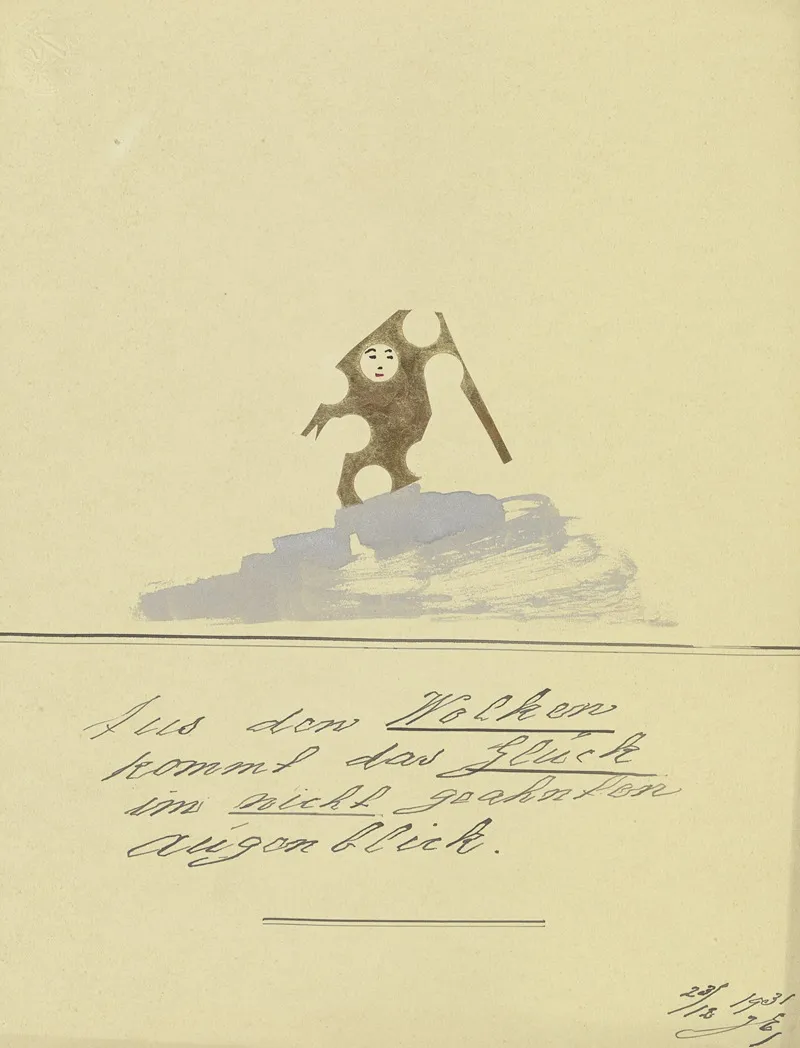 Aus den Wolken
kommt das Glück
im nicht geahnten
augenblick.
23/12 1931